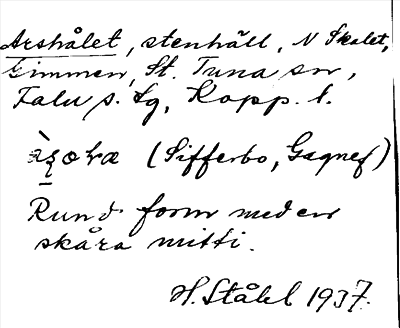 Arshålet, stenhäll, N Skalet,
Gimmen, St. Tuna sn,
Falu s. lg, Kopp. l.
(Sifferbo, Gagnef)
Rund form med en
skåra mitti.
H. Ståhl 1937.